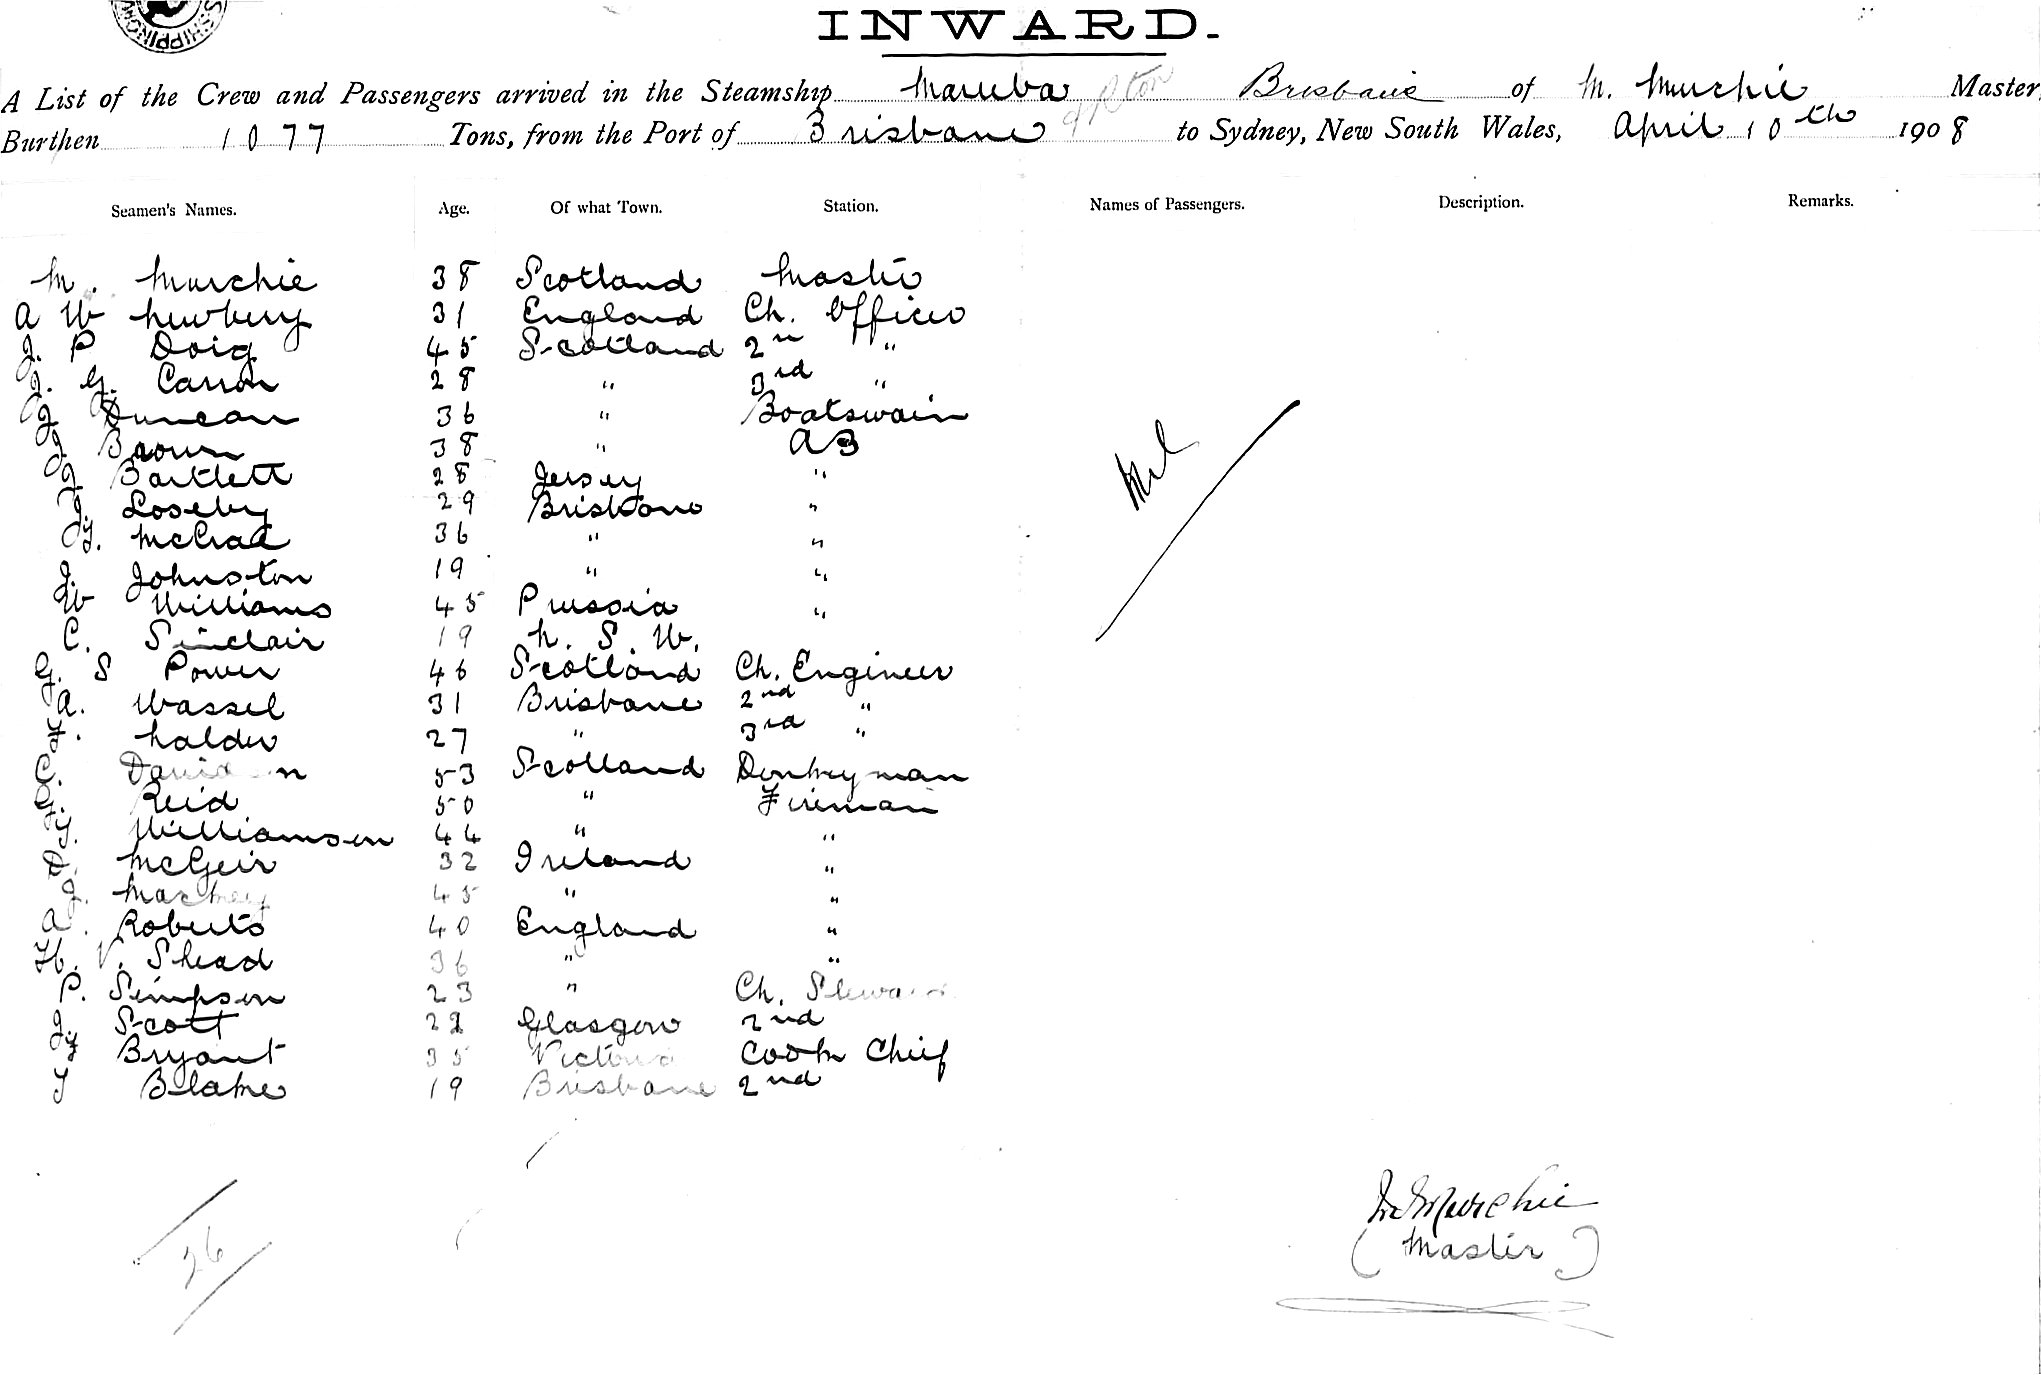 SHIPPING
INWARD.
A List of the Crew and Passengers arrived in the Steamship Maruba Brisbane of M. Murchie Master,
Burthen 1077 Tons, from the Port of Brisbane to Sydney, New South Wales, April 10th 1908
Seamen's Names. Age. Of what Town. Station. Names of Passengers. Description. Remarks.
M. Murchie 38 Scotland Master
A W Newbery 31 England Ch. Officer
J. P Doig 45 Scotland 2n "
J. G. Carron 28 " 3rd "
J Duncan 36 " Boatswain
J Brown 38 " AB
J Bartlett 28 Jersey "
J. Loseby 29 Brisbane "
T. McCrae 36 " "
J. Johnston 19 " "
W Williams 45 Prussia "
C. Sinclair 19 N. S. W.
G. S Power 46 Scotland Ch. Engineer
A. Wassel 31 Brisbane 2nd "
F. Nalder 27 " 3rd "
C. 53 Scotland Donkeyman
G. Reid 50 " Fireman
T. Williamson 44 " "
D. McGeir 32 Ireland "
J. 45 " "
A. Roberts 40 England "
H. V. Shead 36 " "
P. Simpson 23 " Ch. Steward
J. Scott 22 Glasgow 2nd
F Bryant 35 Victoria Cook Chief
T Blake 19 Brisbane 2nd
Nil
26
M Murchie
(Master)